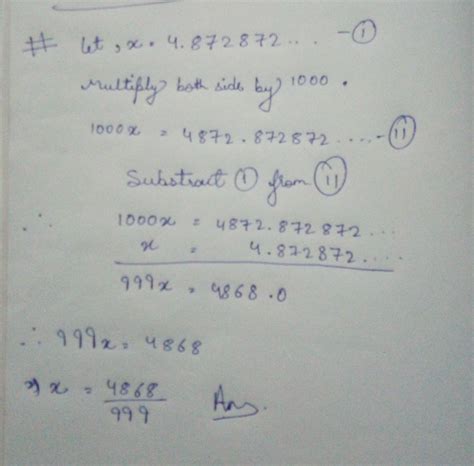 # Let, x = 4.872872... - (I)
Multiply both side by 1000.
1000x = 4872.872872..... - (II)
Substract (I) from (II)
∴ 1000x = 4872.872872...
x = 4.872872....
999x = 4868.0
∴ 999x = 4868
⇒ x = 4868/999 Ans.